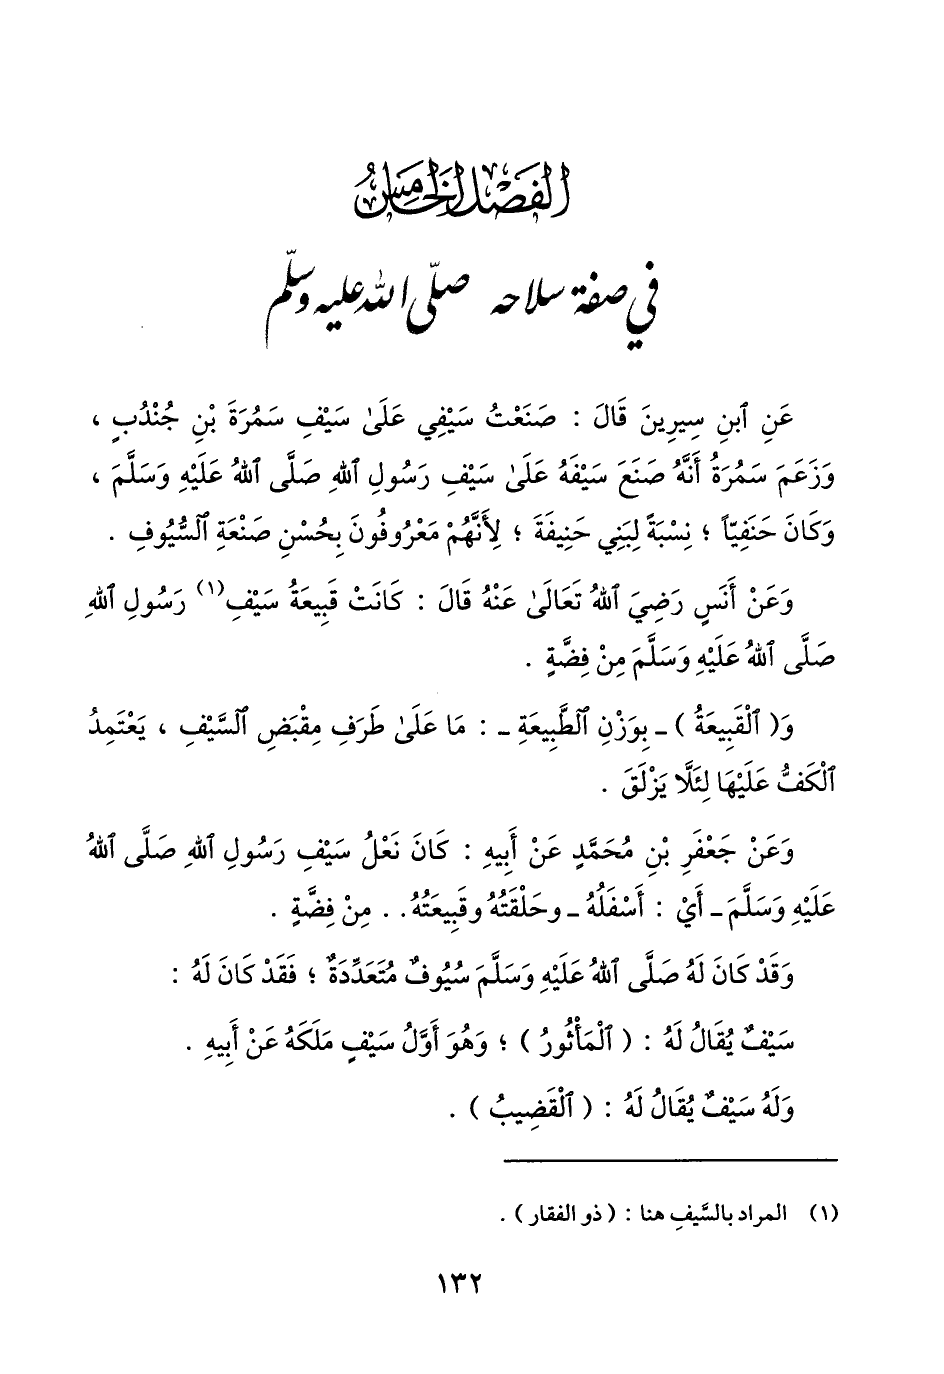 الفصل الخامس
في صفة سلاحه صلّى الله عليه وسلّم
عَنِ ٱبْنِ سِيرِينَ قَالَ : صَنَعْتُ سَيْفِي عَلَىٰ سَيْفِ سَمُرَةَ بْنِ جُنْدُبٍ ،
وَزَعَمَ سَمُرَةُ أَنَّهُ صَنَعَ سَيْفَهُ عَلَىٰ سَيْفِ رَسُولِ ٱللهِ صَلَّى ٱللهُ عَلَيْهِ وَسَلَّمَ ،
وَكَانَ حَنَفِيّاً ؛ نِسْبَةً لِبَنِي حَنِيفَةَ ؛ لِأَنَّهُمْ مَعْرُوفُونَ بِحُسْنِ صَنْعَةِ ٱلسُّيُوفِ .
وَعَنْ أَنَسٍ رَضِيَ ٱللهُ تَعَالَىٰ عَنْهُ قَالَ : كَانَتْ قَبِيعَةُ سَيْفِ(١) رَسُولِ ٱللهِ
صَلَّى ٱللهُ عَلَيْهِ وَسَلَّمَ مِنْ فِضَّةٍ .
وَ( ٱلْقَبِيعَةُ ) ـ بِوَزْنِ ٱلطَّبِيعَةِ ـ : مَا عَلَىٰ طَرَفِ مِقْبَضِ ٱلسَّيْفِ ، يَعْتَمِدُ
ٱلْكَفُّ عَلَيْهَا لِئَلَّا يَزْلَقَ .
وَعَنْ جَعْفَرِ بْنِ مُحَمَّدٍ عَنْ أَبِيهِ : كَانَ نَعْلُ سَيْفِ رَسُولِ ٱللهِ صَلَّى ٱللهُ
عَلَيْهِ وَسَلَّمَ ـ أَيْ : أَسْفَلُهُ ـ وحَلْقَتُهُ وقَبِيعَتُهُ . . مِنْ فِضَّةٍ .
وَقَدْ كَانَ لَهُ صَلَّى ٱللهُ عَلَيْهِ وَسَلَّمَ سُيُوفٌ مُتَعَدِّدَةٌ ؛ فَقَدْ كَانَ لَهُ :
سَيْفٌ يُقَالُ لَهُ : ( ٱلْمَأْثُورُ ) ؛ وَهُوَ أَوَّلُ سَيْفٍ مَلَكَهُ عَنْ أَبِيهِ .
وَلَهُ سَيْفٌ يُقَالُ لَهُ : ( ٱلْقَضِيبُ ) .
(١) المراد بالسَّيفِ هنا : ( ذو الفقار ) .
١٣٢